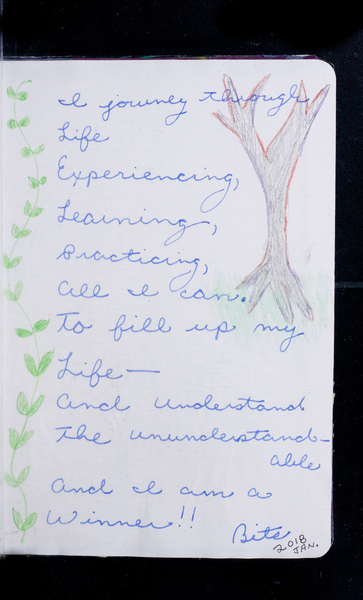 I journey through
Life
Experiencing,
Learning,
Practicing,
All I can.
To fill up my
Life—
And understand
The ununderstand-
able
And I am a
Winner!!
Bits
2018
JAN.